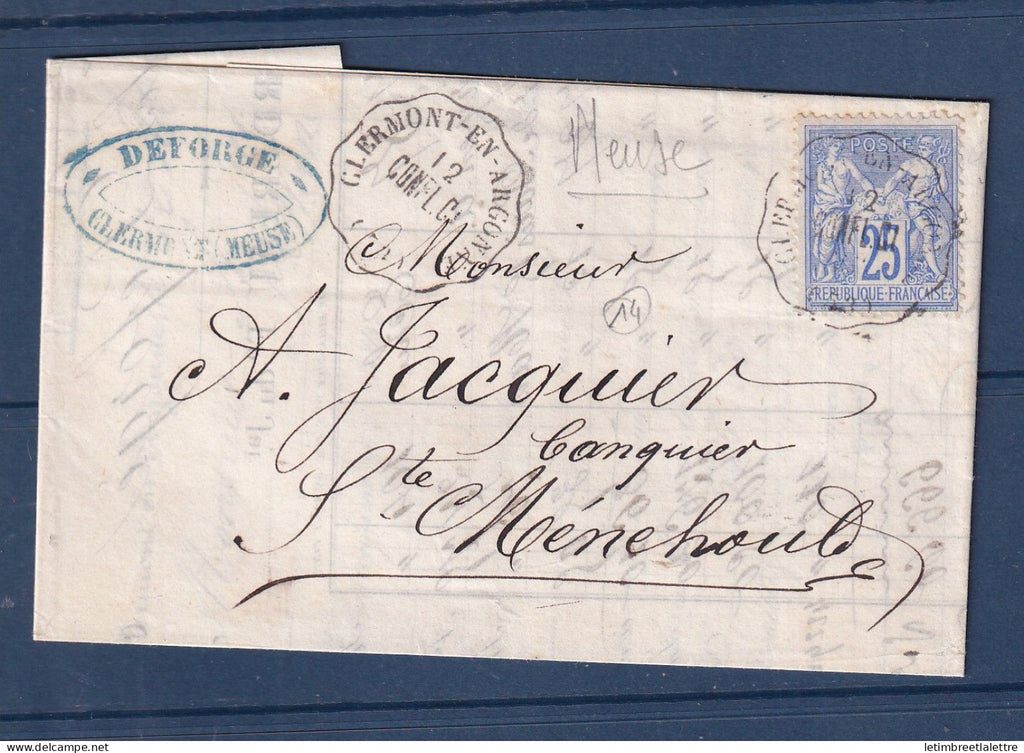 DEFORGE
CLERMONT (MEUSE)
CLERMONT-EN-ARGONNE
12
CONFL.
Meuse
POSTE
25
REPUBLIQUE FRANÇAISE
14
Monsieur
A. Jacquier
banquier
Ste Ménehould
delcampe.net
letimbreetlalettre